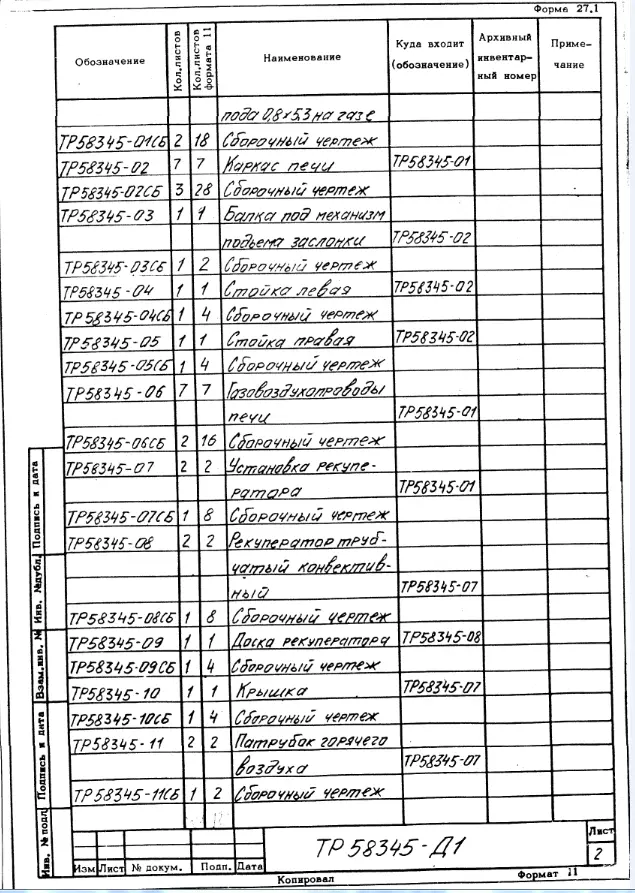 Форма 27.1
Обозначение Кол.листов Кол.листов формата 11 Наименование Куда входит (обозначение) Архивный инвентарный номер Примечание
пода 0,8×5,3 на газе
ТР58345-01СБ 2 18 Сборочный чертеж
ТР58345-02 7 7 Каркас печи ТР58345-01
ТР58345-02СБ 3 28 Сборочный чертеж
ТР58345-03 1 1 Балка под механизм
подъема заслонки ТР58345-02
ТР58345-03СБ 1 2 Сборочный чертеж
ТР58345-04 1 1 Стойка левая ТР58345-02
ТР58345-04СБ 1 4 Сборочный чертеж
ТР58345-05 1 1 Стойка правая ТР58345-02
ТР58345-05СБ 1 4 Сборочный чертеж
ТР58345-06 7 7 Газовоздухопроводы
печи ТР58345-01
ТР58345-06СБ 2 16 Сборочный чертеж
ТР58345-07 2 2 Установка рекупе-
ратора ТР58345-01
ТР58345-07СБ 1 8 Сборочный чертеж
ТР58345-08 2 2 Рекуператор труб-
чатый конвектив-
ный ТР58345-07
ТР58345-08СБ 1 8 Сборочный чертеж
ТР58345-09 1 1 Доска рекуператора ТР58345-08
ТР58345-09СБ 1 4 Сборочный чертеж
ТР58345-10 1 1 Крышка ТР58345-07
ТР58345-10СБ 1 4 Сборочный чертеж
ТР58345-11 2 2 Патрубок горячего
воздуха ТР58345-07
ТР58345-11СБ 1 2 Сборочный чертеж
Подпись и дата
Инв. №дубл.
Взам.инв. №
Подпись и дата
Инв. № подл
ТР58345-Д1
Лист
2
Изм Лист № докум. Подп. Дата
Копировал Формат 11